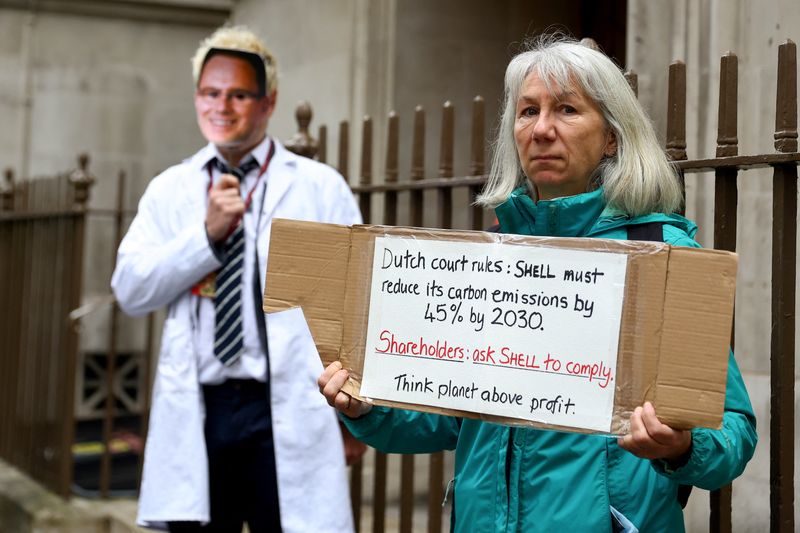 Dutch court rules: SHELL must
reduce its carbon emissions by
45% by 2030.
Shareholders: ask SHELL to comply.
Think planet above profit.